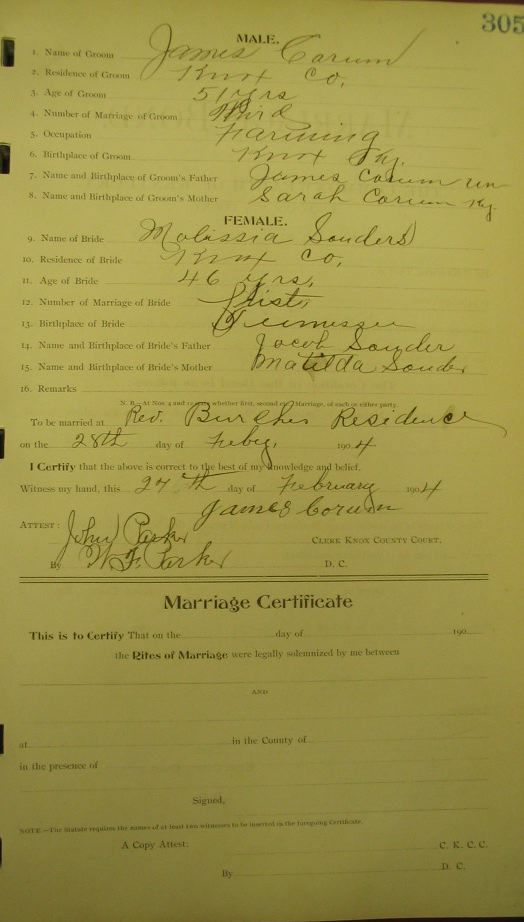 305
MALE.
1. Name of Groom James Corum
2. Residence of Groom Knox Co,
3. Age of Groom 51 yrs
4. Number of Marriage of Groom Third
5. Occupation Farming
6. Birthplace of Groom Knox Ky.
7. Name and Birthplace of Groom's Father James Corum
8. Name and Birthplace of Groom's Mother Sarah Corum Ky
FEMALE.
9. Name of Bride Malissia Souders
10. Residence of Bride Knox Co,
11. Age of Bride 46 yrs,
12. Number of Marriage of Bride First,
13. Birthplace of Bride Tennessee
14. Name and Birthplace of Bride's Father Jacob Souder
15. Name and Birthplace of Bride's Mother Matilda Souder
16. Remarks
N. B.—At Nos. 4 and 12 state whether first, second etc., Marriage, of each or either party.
To be married at Rev. Burches Residence
on the 28th day of Feby, 1904
I Certify that the above is correct to the best of my knowledge and belief.
Witness my hand, this 27th day of February 1904
James Corum
ATTEST: John Parker CLERK KNOX COUNTY COURT.
By W. F. Parker D. C.
Marriage Certificate
This is to Certify That on the day of 190
the Rites of Marriage were legally solemnized by me between
AND
at in the County of
in the presence of
Signed,
NOTE.—The Statute requires the names of at least two witnesses to be inserted in the foregoing Certificate.
A Copy Attest: C. K. C. C.
By D. C.